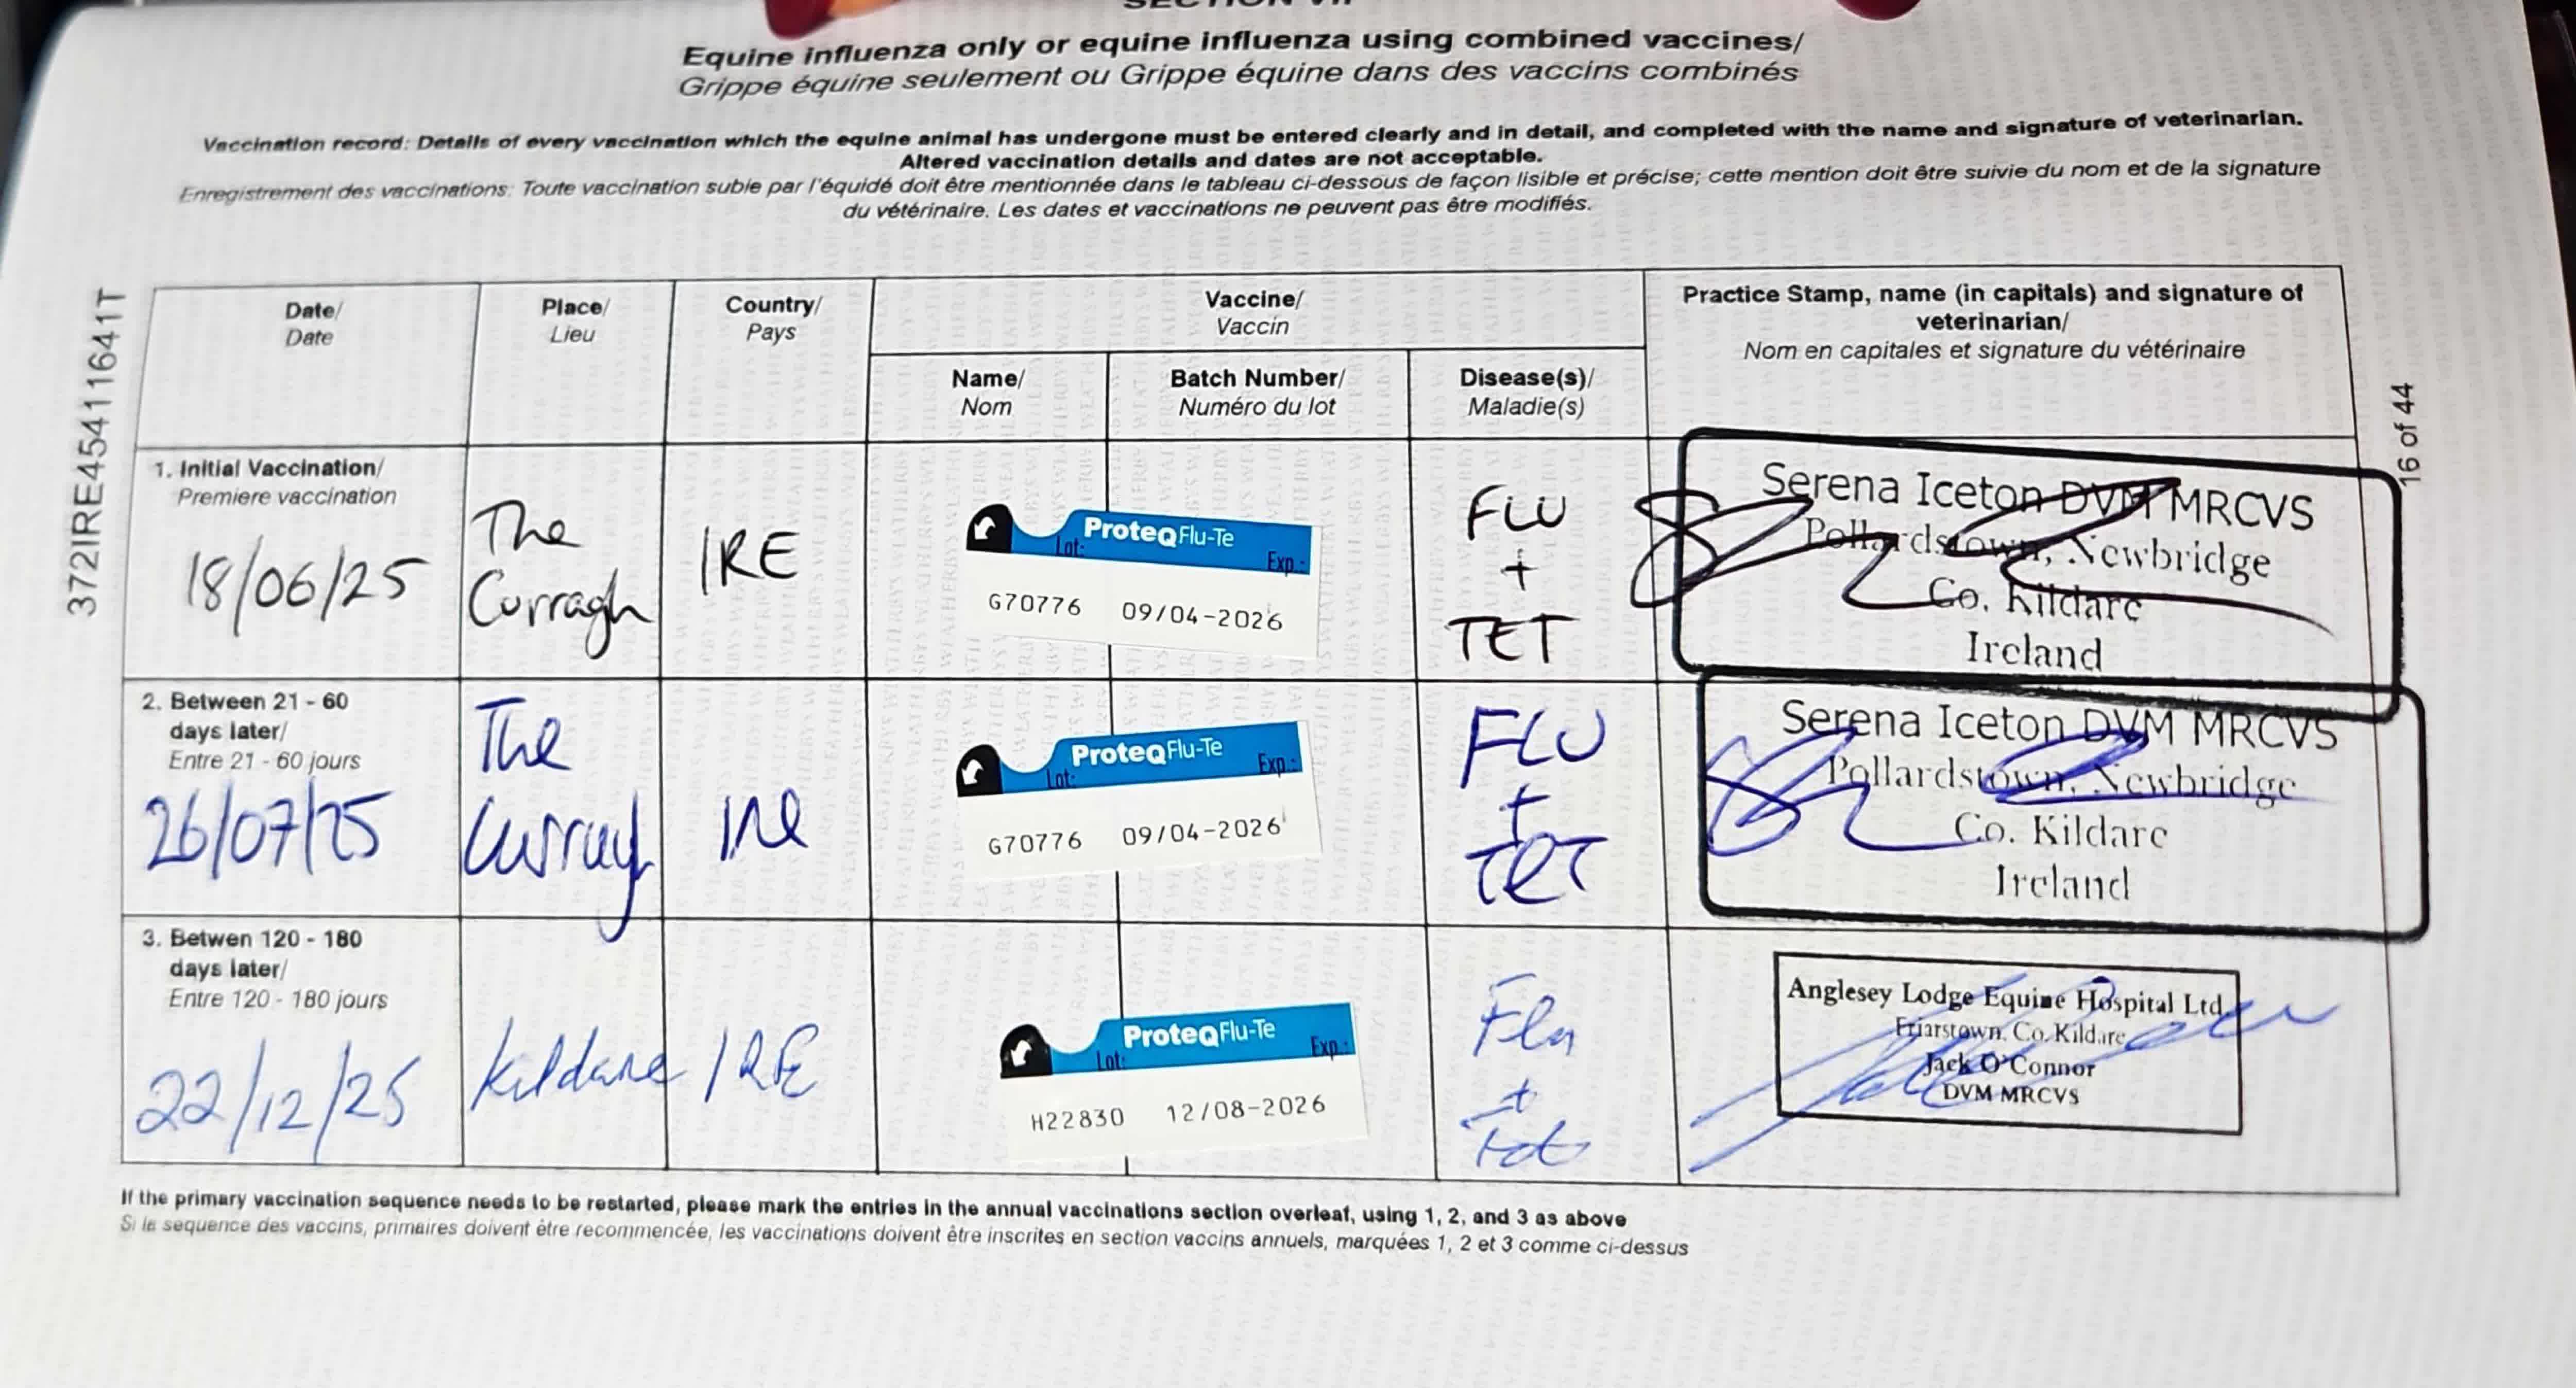 SECTION VII
Equine influenza only or equine influenza using combined vaccines/
Grippe équine seulement ou Grippe équine dans des vaccins combinés
Vaccination record: Details of every vaccination which the equine animal has undergone must be entered clearly and in detail, and completed with the name and signature of veterinarian.
Altered vaccination details and dates are not acceptable.
Enregistrement des vaccinations: Toute vaccination subie par l'équidé doit être mentionnée dans le tableau ci-dessous de façon lisible et précise; cette mention doit être suivie du nom et de la signature
du vétérinaire. Les dates et vaccinations ne peuvent pas être modifiés.
372IRE45411641T
16 of 44
Date/
Date
Place/
Lieu
Country/
Pays
Vaccine/
Vaccin
Name/
Nom
Batch Number/
Numéro du lot
Disease(s)/
Maladie(s)
Practice Stamp, name (in capitals) and signature of
veterinarian/
Nom en capitales et signature du vétérinaire
1. Initial Vaccination/
Premiere vaccination
18/06/25
The
Curragh
IRE
ProteqFlu-Te
Lot: Exp.:
G70776 09/04-2026
FLU
+
TET
Serena Iceton DVM MRCVS
Pollardstown, Newbridge
Co. Kildare
Ireland
2. Between 21 - 60
days later/
Entre 21 - 60 jours
26/07/25
The
Curragh
IRE
ProteqFlu-Te
Lot: Exp.:
G70776 09/04-2026
FLU
+
TET
Serena Iceton DVM MRCVS
Pollardstown, Newbridge
Co. Kildare
Ireland
3. Betwen 120 - 180
days later/
Entre 120 - 180 jours
22/12/25
Kildare
IRE
ProteqFlu-Te
Lot: Exp.:
H22830 12/08-2026
Flu
+
Tet
Anglesey Lodge Equine Hospital Ltd
Friarstown, Co. Kildare
Jack O'Connor
DVM MRCVS
If the primary vaccination sequence needs to be restarted, please mark the entries in the annual vaccinations section overleaf, using 1, 2, and 3 as above
Si le sequence des vaccins, primaires doivent être recommencée, les vaccinations doivent être inscrites en section vaccins annuels, marquées 1, 2 et 3 comme ci-dessus